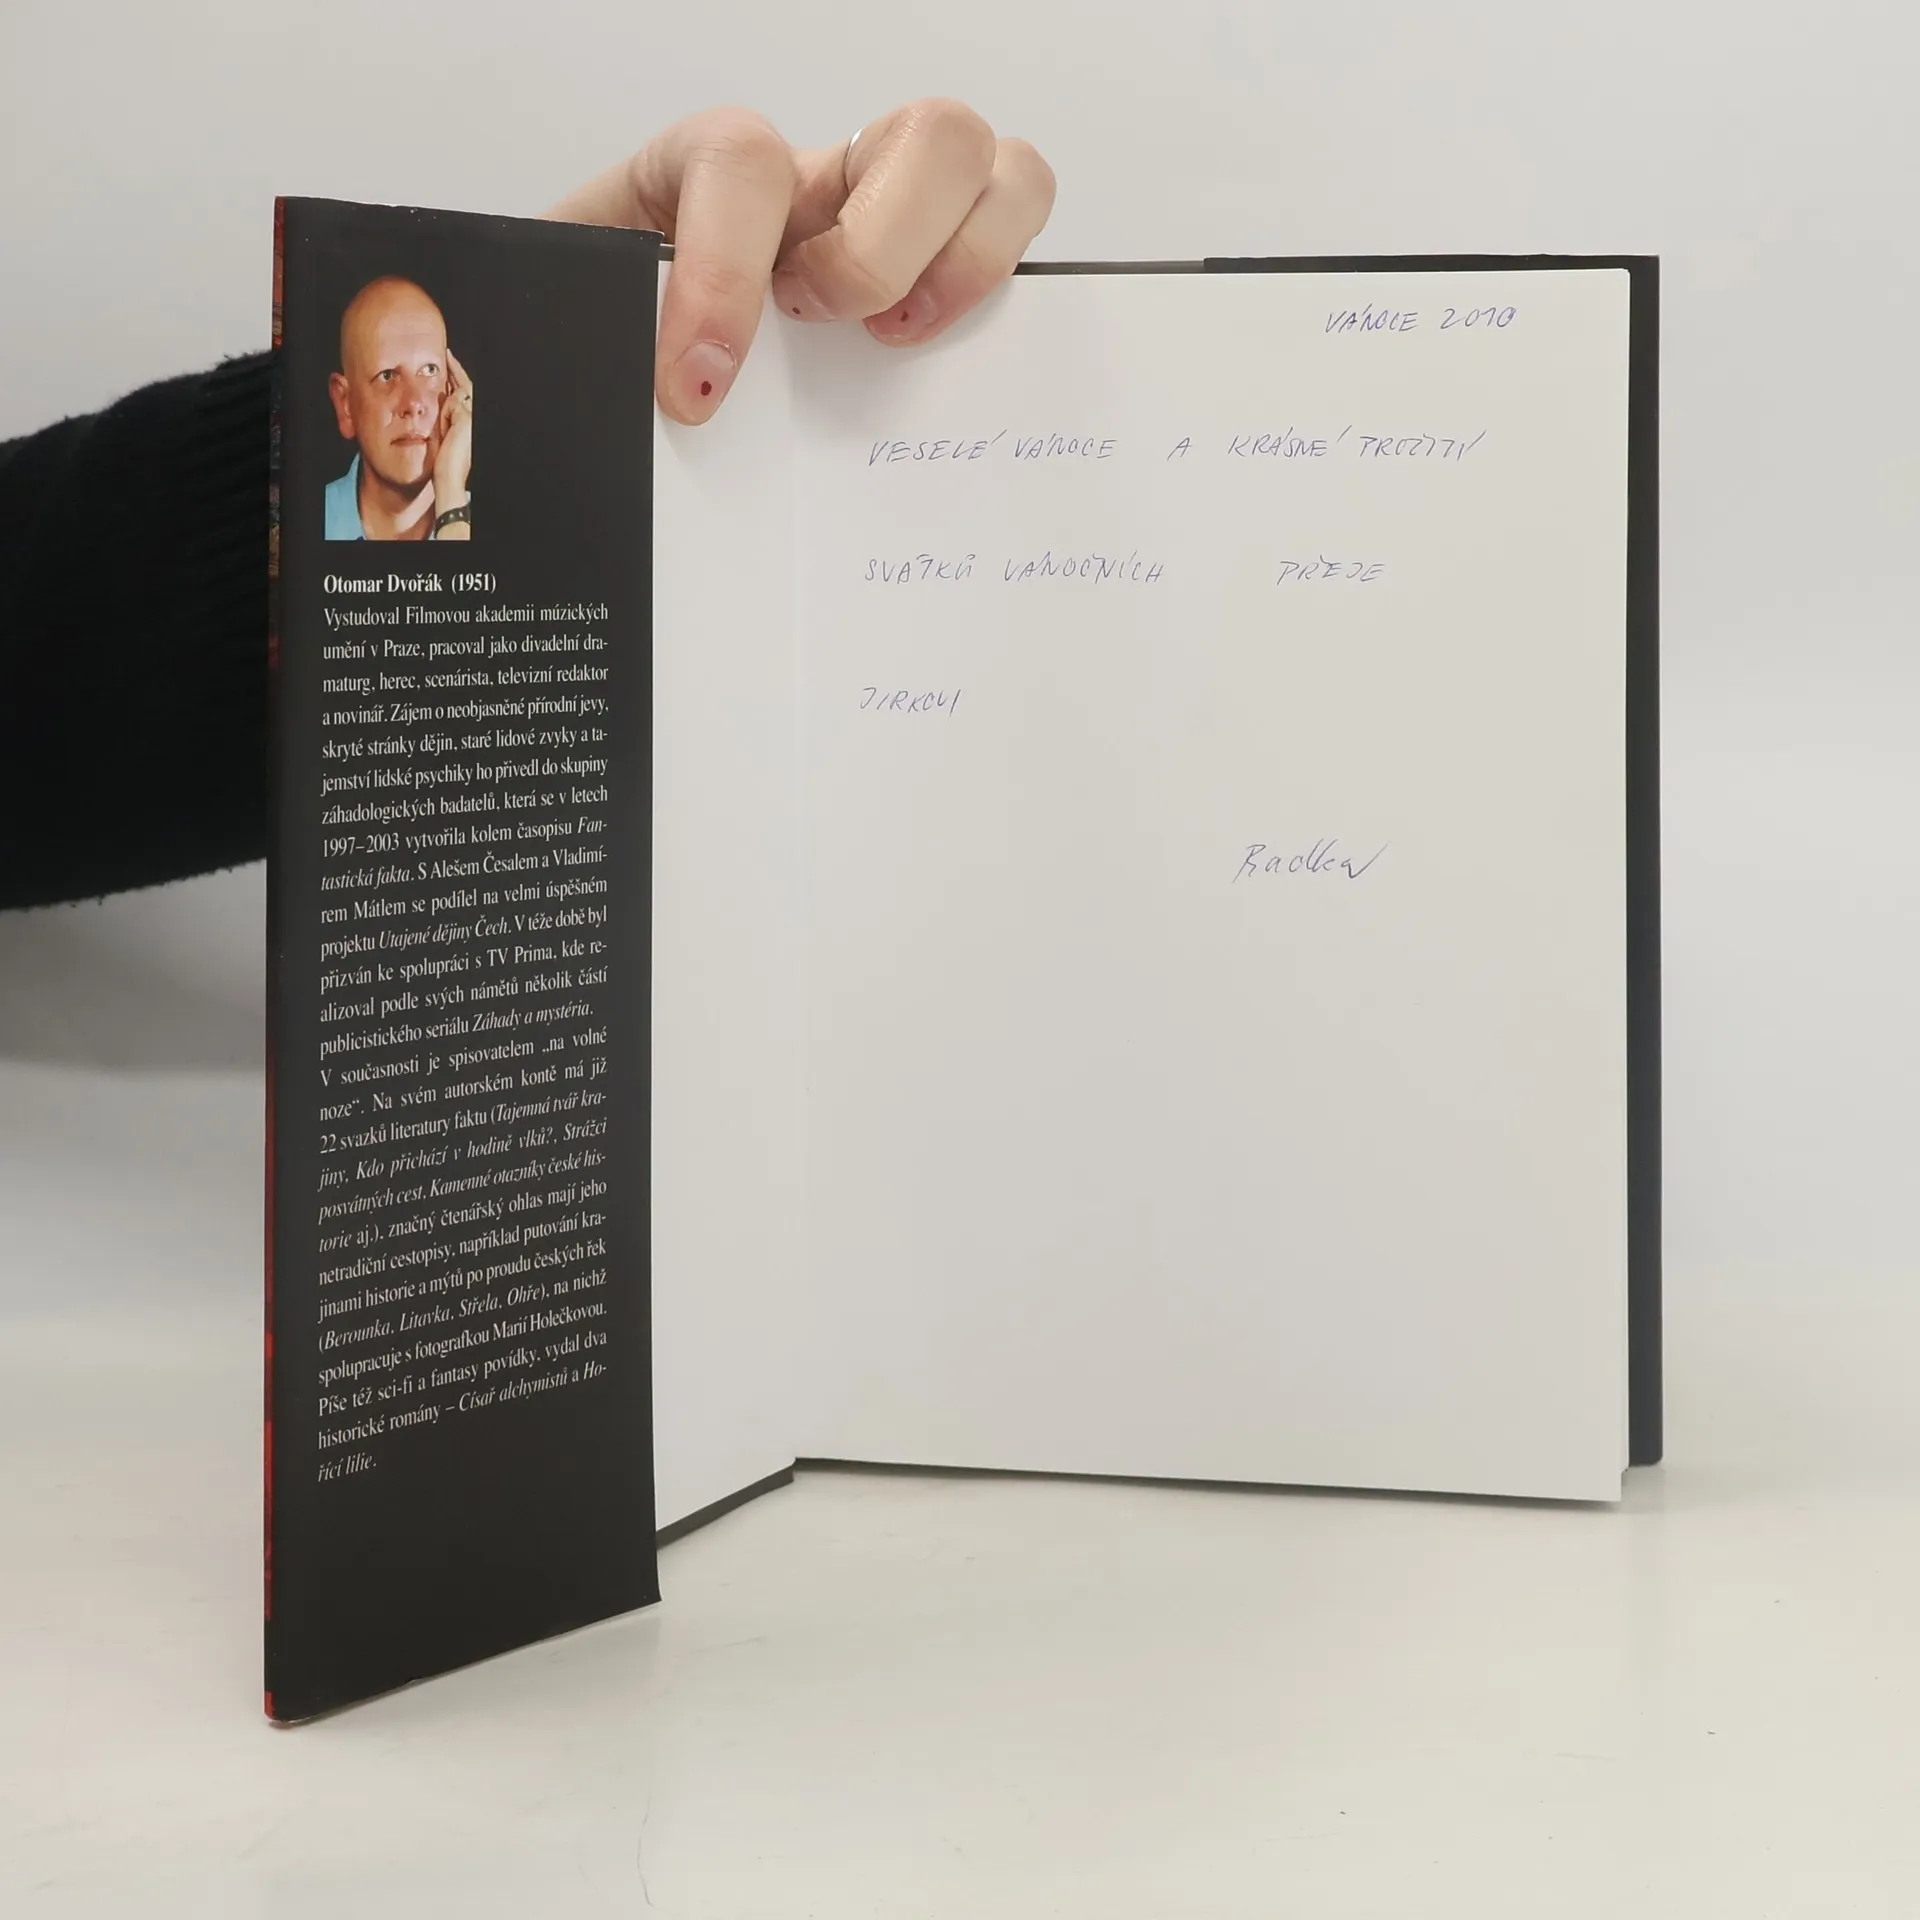 Otomar Dvořák (1951)
Vystudoval Filmovou akademii múzických
umění v Praze, pracoval jako divadelní dra-
maturg, herec, scenárista, televizní redaktor
a novinář. Zájem o neobjasněné přírodní jevy,
skryté stránky dějin, staré lidové zvyky a ta-
jemství lidské psychiky ho přivedl do skupiny
záhadologických badatelů, která se v letech
1997–2003 vytvořila kolem časopisu Fan-
tastická fakta. S Alešem Česalem a Vladimí-
rem Mátlem se podílel na velmi úspěšném
projektu Utajené dějiny Čech. V téže době byl
přizván ke spolupráci s TV Prima, kde re-
alizoval podle svých námětů několik částí
publicistického seriálu Záhady a mystéria.
V současnosti je spisovatelem „na volné
noze“. Na svém autorském kontě má již
22 svazků literatury faktu (Tajemná tvář kra-
jiny, Kdo přichází v hodině vlků?, Strážci
posvátných cest, Kamenné otazníky české his-
torie aj.), značný čtenářský ohlas mají jeho
netradiční cestopisy, například putování kra-
jinami historie a mýtů po proudu českých řek
(Berounka, Litavka, Střela, Ohře), na nichž
spolupracuje s fotografkou Marií Holečkovou.
Píše též sci-fi a fantasy povídky, vydal dva
historické romány – Císař alchymistů a Ho-
řící lilie.
VÁNOCE 2010
VESELÉ VÁNOCE A KRÁSNÉ PROŽITÍ
SVÁTKŮ VÁNOČNÍCH PŘEJE
JIRKOVI
Radka